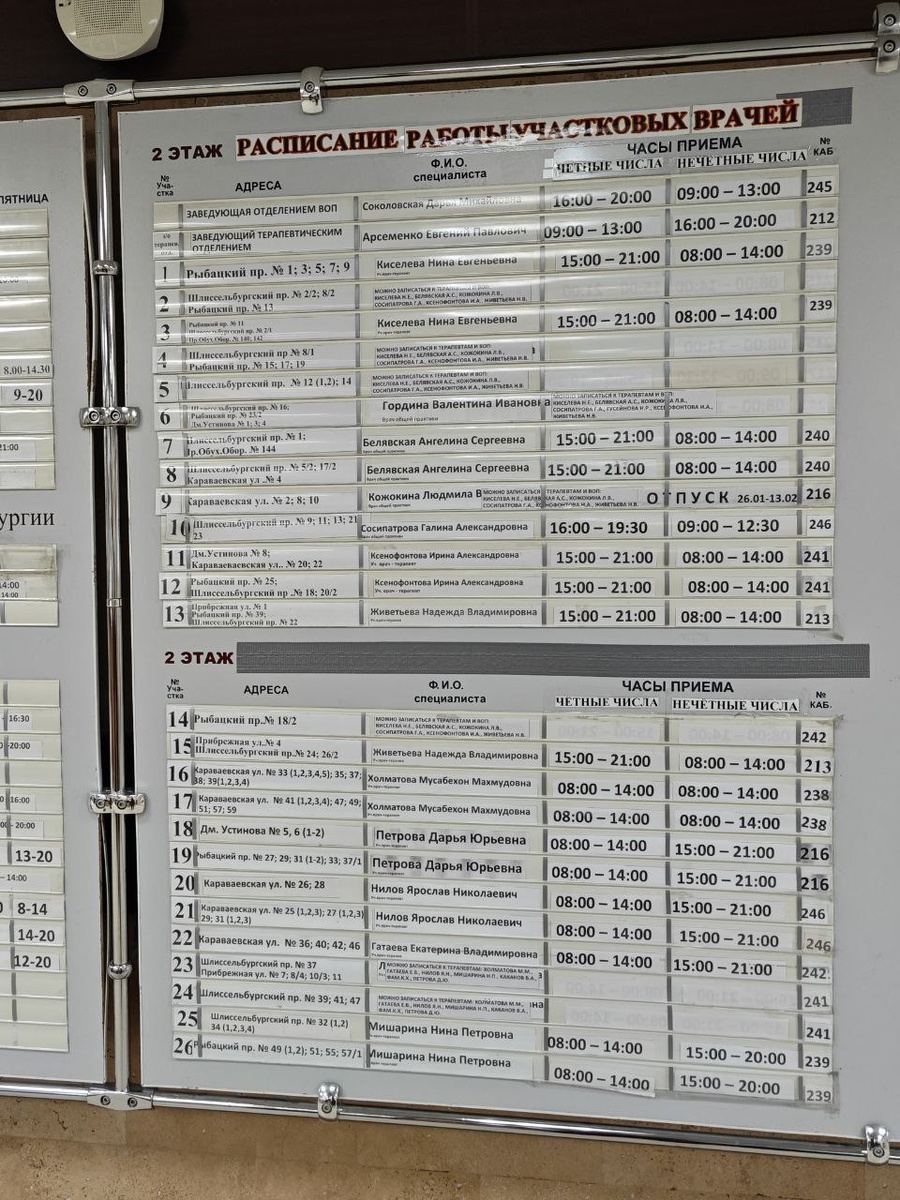 ПЯТНИЦА
8.00-14.30
9-20
21:00
ургии
14:00
16:30
20:00
16:00
20:00
13-20
14:00
8-14
14-20
12-20
2 ЭТАЖ РАСПИСАНИЕ РАБОТЫ УЧАСТКОВЫХ ВРАЧЕЙ
№ Уча-стка АДРЕСА Ф.И.О. специалиста ЧАСЫ ПРИЕМА № КАБ
ЧЕТНЫЕ ЧИСЛА НЕЧЕТНЫЕ ЧИСЛА
ЗАВЕДУЮЩАЯ ОТДЕЛЕНИЕМ ВОП Соколовская Дарья Михайловна 16:00 – 20:00 09:00 – 13:00 245
ЗАВЕДУЮЩИЙ ТЕРАПЕВТИЧЕСКИМ ОТДЕЛЕНИЕМ Арсеменко Евгений Павлович 09:00 – 13:00 16:00 – 20:00 212
1 Рыбацкий пр. № 1; 3; 5; 7; 9 Киселева Нина Евгеньевна 15:00 – 21:00 08:00 – 14:00 239
2 Шлиссельбургский пр. № 2/2; 8/2
Рыбацкий пр. № 13
МОЖНО ЗАПИСАТЬСЯ К ТЕРАПЕВТАМ И ВОП:
КИСЕЛЕВА Н.Е., БЕЛЯВСКАЯ А.С., КОЖОКИНА Л.В.,
СОСИПАТРОВА Г.А., КСЕНОФОНТОВА И.А., ЖИВЕТЬЕВА Н.В.
3 Рыбацкий пр. № 11
Шлиссельбургский пр. № 2/1
Пр.Обух.Обор. № 140; 142
Киселева Нина Евгеньевна 15:00 – 21:00 08:00 – 14:00 239
4 Шлиссельбургский пр № 8/1
Рыбацкий пр. № 15; 17; 19
МОЖНО ЗАПИСАТЬСЯ К ТЕРАПЕВТАМ И ВОП:
КИСЕЛЕВА Н.Е., БЕЛЯВСКАЯ А.С., КОЖОКИНА Л.В.,
СОСИПАТРОВА Г.А., КСЕНОФОНТОВА И.А., ЖИВЕТЬЕВА Н.В.
5 Шлиссельбургский пр. № 12 (1,2); 14
МОЖНО ЗАПИСАТЬСЯ К ТЕРАПЕВТАМ И ВОП:
КИСЕЛЕВА Н.Е., БЕЛЯВСКАЯ А.С., КОЖОКИНА Л.В.,
СОСИПАТРОВА Г.А., КСЕНОФОНТОВА И.А., ЖИВЕТЬЕВА Н.В.
6 Шлиссельбургский пр. № 16;
Рыбацкий пр. 23/2
Дм.Устинова № 1; 3; 4
Гордина Валентина Ивановна
Врач общей практики
МОЖНО ЗАПИСАТЬСЯ К ТЕРАПЕВТАМ И ВОП:
КИСЕЛЕВА Н.Е., БЕЛЯВСКАЯ А.С., КОЖОКИНА Л.В.,
СОСИПАТРОВА Г.А., ГУСЕЙНОВА И.Р., КСЕНОФОНТОВА И.А.,
ЖИВЕТЬЕВА Н.В.
7 Шлиссельбургский пр. № 1;
Пр.Обух.Обор. № 144
Белявская Ангелина Сергеевна 15:00 – 21:00 08:00 – 14:00 240
8 Шлиссельбургский пр. № 5/2; 17/2
Караваевская ул .№ 4
Белявская Ангелина Сергеевна 15:00 – 21:00 08:00 – 14:00 240
9 Караваевская ул. № 2; 8; 10 Кожокина Людмила В ОТПУСК 26.01-13.02 216
МОЖНО ЗАПИСАТЬСЯ К ТЕРАПЕВТАМ И ВОП:
10 Шлиссельбургский пр. № 9; 11; 13; 21
23
Сосипатрова Галина Александровна 16:00 – 19:30 09:00 – 12:30 246
11 Дм.Устинова № 8;
Караваеваская ул.. № 20; 22
Ксенофонтова Ирина Александровна 15:00 – 21:00 08:00 – 14:00 241
Уч. врач - терапевт
12 Рыбацкий пр. № 25;
Шлиссельбургский пр .№ 18; 20/2
Ксенофонтова Ирина Александровна 15:00 – 21:00 08:00 – 14:00 241
Уч. врач - терапевт
13 Прибрежная ул. № 1
Рыбацкий пр. № 39;
Шлиссельбургский пр. № 22
Живетьева Надежда Владимировна 15:00 – 21:00 08:00 – 14:00 213
2 ЭТАЖ
№ Уча-стка АДРЕСА Ф.И.О. специалиста ЧАСЫ ПРИЕМА № КАБ.
ЧЕТНЫЕ ЧИСЛА НЕЧЕТНЫЕ ЧИСЛА
14 Рыбацкий пр.№ 18/2 242
МОЖНО ЗАПИСАТЬСЯ К ТЕРАПЕВТАМ И ВОП:
КИСЕЛЕВА Н.Е., БЕЛЯВСКАЯ А.С., КОЖОКИНА Л.В.,
СОСИПАТРОВА Г.А., КСЕНОФОНТОВА И.А., ЖИВЕТЬЕВА Н.В.
15 Прибрежная ул.№ 4
Шлиссельбургский пр.№ 24; 26/2
Живетьева Надежда Владимировна 15:00 – 21:00 08:00 – 14:00 213
16 Караваевская ул. № 33 (1,2,3,4,5); 35; 37;
38; 39(1,2,3,4)
Холматова Мусабехон Махмудовна 08:00 – 14:00 08:00 – 14:00 238
17 Караваевская ул. № 41 (1,2,3,4); 47; 49;
51; 57; 59
Холматова Мусабехон Махмудовна 08:00 – 14:00 08:00 – 14:00 238
18 Дм. Устинова № 5, 6 (1-2) Петрова Дарья Юрьевна 08:00 – 14:00 15:00 – 21:00 216
19 Рыбацкий пр. № 27; 29; 31 (1-2); 33; 37/1 Петрова Дарья Юрьевна 08:00 – 14:00 15:00 – 21:00 216
20 Караваевская ул. № 26; 28 Нилов Ярослав Николаевич 08:00 – 14:00 15:00 – 21:00 246
21 Караваевская ул. № 25 (1,2,3); 27 (1,2,3)
29; 31 (1,2,3)
Нилов Ярослав Николаевич 08:00 – 14:00 15:00 – 21:00 246
22 Караваевская ул. № 36; 40; 42; 46 Гатаева Екатерина Владимировна 08:00 – 14:00 15:00 – 21:00 242
23 Шлиссельбургский пр. № 37
Прибрежная ул. № 7; 8/4; 10/3; 11 241
МОЖНО ЗАПИСАТЬСЯ К ТЕРАПЕВТАМ: ХОЛМАТОВА М.М.,
ГАТАЕВА Е.В., НИЛОВ Я.Н., МИШАРИНА Н.П., КАКАНОВ В.А.,
ФАМ.К.Х., ПЕТРОВА Д.Ю.
24 Шлиссельбургский пр. № 39; 41; 47 241
МОЖНО ЗАПИСАТЬСЯ К ТЕРАПЕВТАМ: ХОЛМАТОВА М.М.,
ГАТАЕВА Е.В., НИЛОВ Я.Н., МИШАРИНА Н.П., КАКАНОВ В.А.,
ФАМ.К.Х., ПЕТРОВА Д.Ю.
25 Шлиссельбургский пр. № 32 (1,2)
34 (1,2,3,4)
Мишарина Нина Петровна 08:00 – 14:00 15:00 – 20:00 239
26 Рыбацкий пр. № 49 (1,2); 51; 55; 57/1 Мишарина Нина Петровна 08:00 – 14:00 15:00 – 20:00 239